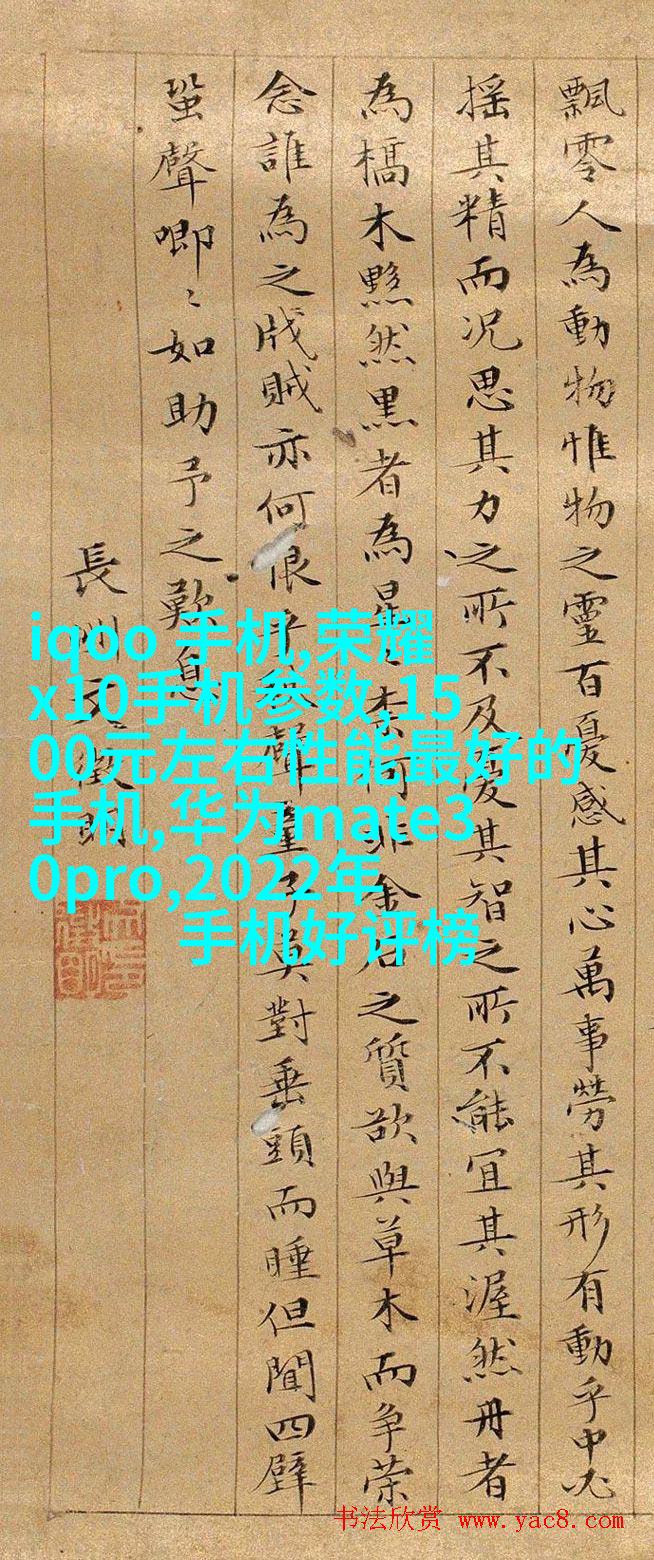 飄零人為動物惟物之靈百憂感其心萬事勞其形有動乎中必
搖其精而況思其力之所不及憂其智之所不能宜其渥然丹者
為槁木黟然黑者為星〻柰何非金石之質欲與草木而争榮
念誰為之戕賊亦何恨乎秋聲童子莫對垂頭而睡但聞四壁
蛩聲唧〻如助予之歎息
長洲文徵明
iqoo 手机,荣耀
x10手机参数,15
00元左右性能最好的
手机,华为mate3
0pro,2022年
手机好评榜
书法欣赏 www.yac8.com